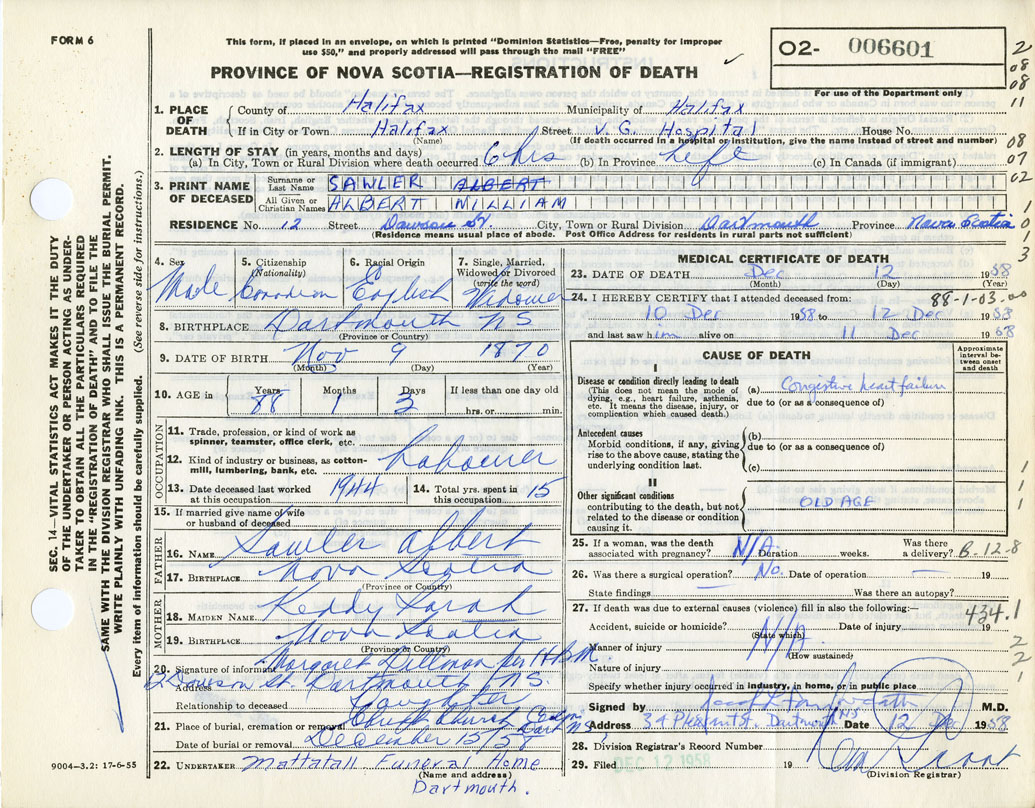 FORM 6
This form, if placed in an envelope, on which is printed "Dominion Statistics—Free, penalty for improper
use $50," and properly addressed will pass through the mail "FREE"
PROVINCE OF NOVA SCOTIA—REGISTRATION OF DEATH
O2- 006601
For use of the Department only
2
08
08
11
08
07
02
1
0
1
3
SEC. 14—VITAL STATISTICS ACT MAKES IT THE DUTY
OF THE UNDERTAKER OR PERSON ACTING AS UNDER-
TAKER TO OBTAIN ALL THE PARTICULARS REQUIRED
IN THE "REGISTRATION OF DEATH" AND TO FILE THE
SAME WITH THE DIVISION REGISTRAR WHO SHALL ISSUE THE BURIAL PERMIT.
WRITE PLAINLY WITH UNFADING INK. THIS IS A PERMANENT RECORD.
Every item of information should be carefully supplied. (See reverse side for instructions.)
1. PLACE OF DEATH
County of Halifax Municipality of Halifax
If in City or Town Halifax Street V. G. Hospital House No.
(Name) (If death occurred in a hospital or institution, give the name instead of street and number)
2. LENGTH OF STAY (in years, months and days)
(a) In City, Town or Rural Division where death occurred 6 hrs (b) In Province Life (c) In Canada (if immigrant)
3. PRINT NAME OF DECEASED
Surname or Last Name SAWLER ALBERT
All Given or Christian Names ALBERT WILLIAM
RESIDENCE No. 12 Street Dawson St. City, Town or Rural Division Dartmouth Province Nova Scotia
(Residence means usual place of abode. Post Office Address for residents in rural parts not sufficient)
4. Sex Male
5. Citizenship (Nationality) Canadian
6. Racial Origin English
7. Single, Married, Widowed or Divorced (write the word) Widower
8. BIRTHPLACE Dartmouth N S
(Province or Country)
9. DATE OF BIRTH Nov 9 1870
(Month) (Day) (Year)
10. AGE in Years 88 Months 1 Days 3 If less than one day old hrs. or min.
OCCUPATION
11. Trade, profession or kind of work as spinner, teamster, office clerk, etc.
12. Kind of industry or business, as cotton-mill, lumbering, bank, etc. Labourer
13. Date deceased last worked at this occupation 1944
14. Total yrs. spent in this occupation 15
15. If married give name of wife or husband of deceased
FATHER
16. NAME Sawler Albert
17. BIRTHPLACE Nova Scotia
(Province or Country)
MOTHER
18. MAIDEN NAME Keddy Sarah
19. BIRTHPLACE Nova Scotia
(Province or Country)
20. Signature of informant Margaret Dillman per H.B.M.
Address 12 Dawson St. Dartmouth N.S.
Relationship to deceased Daughter
21. Place of burial, cremation or removal Christ Church Cem Dart N.S.
Date of burial or removal December 15/58
22. UNDERTAKER Mattatall Funeral Home
(Name and address)
Dartmouth.
9004—3.2: 17-6-55
MEDICAL CERTIFICATE OF DEATH
23. DATE OF DEATH Dec 12 1958
(Month) (Day) (Year)
24. I HEREBY CERTIFY that I attended deceased from: 88-1-03.00
10 Dec 1958 to 12 Dec 1958
and last saw him alive on 11 Dec 1958
CAUSE OF DEATH
Approximate interval between onset and death
I
Disease or condition directly leading to death
(This does not mean the mode of dying, e.g., heart failure, asthenia, etc. It means the disease, injury, or complication which caused death.)
(a) Congestive heart failure
due to (or as a consequence of)
Antecedent causes
Morbid conditions, if any, giving rise to the above cause, stating the underlying condition last.
(b)
due to (or as a consequence of)
(c)
II
Other significant conditions
contributing to the death, but not related to the disease or condition causing it.
OLD AGE
1
1
1
25. If a woman, was the death associated with pregnancy? N/A Duration weeks. Was there a delivery? B-12-8
26. Was there a surgical operation? No. Date of operation — 19
State findings — Was there an autopsy?
27. If death was due to external causes (violence) fill in also the following:—
434.1
Accident, suicide or homicide? N/A Date of injury 19
(State which)
Manner of injury
(How sustained)
Nature of injury
Specify whether injury occurred in industry, in home, or in public place
2
2
1
Signed by M.D.
Address 34 Pleasant St. Dartmouth NS Date 12 Dec 1958
28. Division Registrar's Record Number
29. Filed DEC 12 1958 19
(Division Registrar)